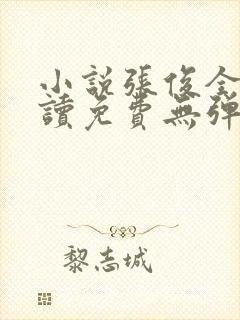 小說張俊全
讀免費無彈
黎志城